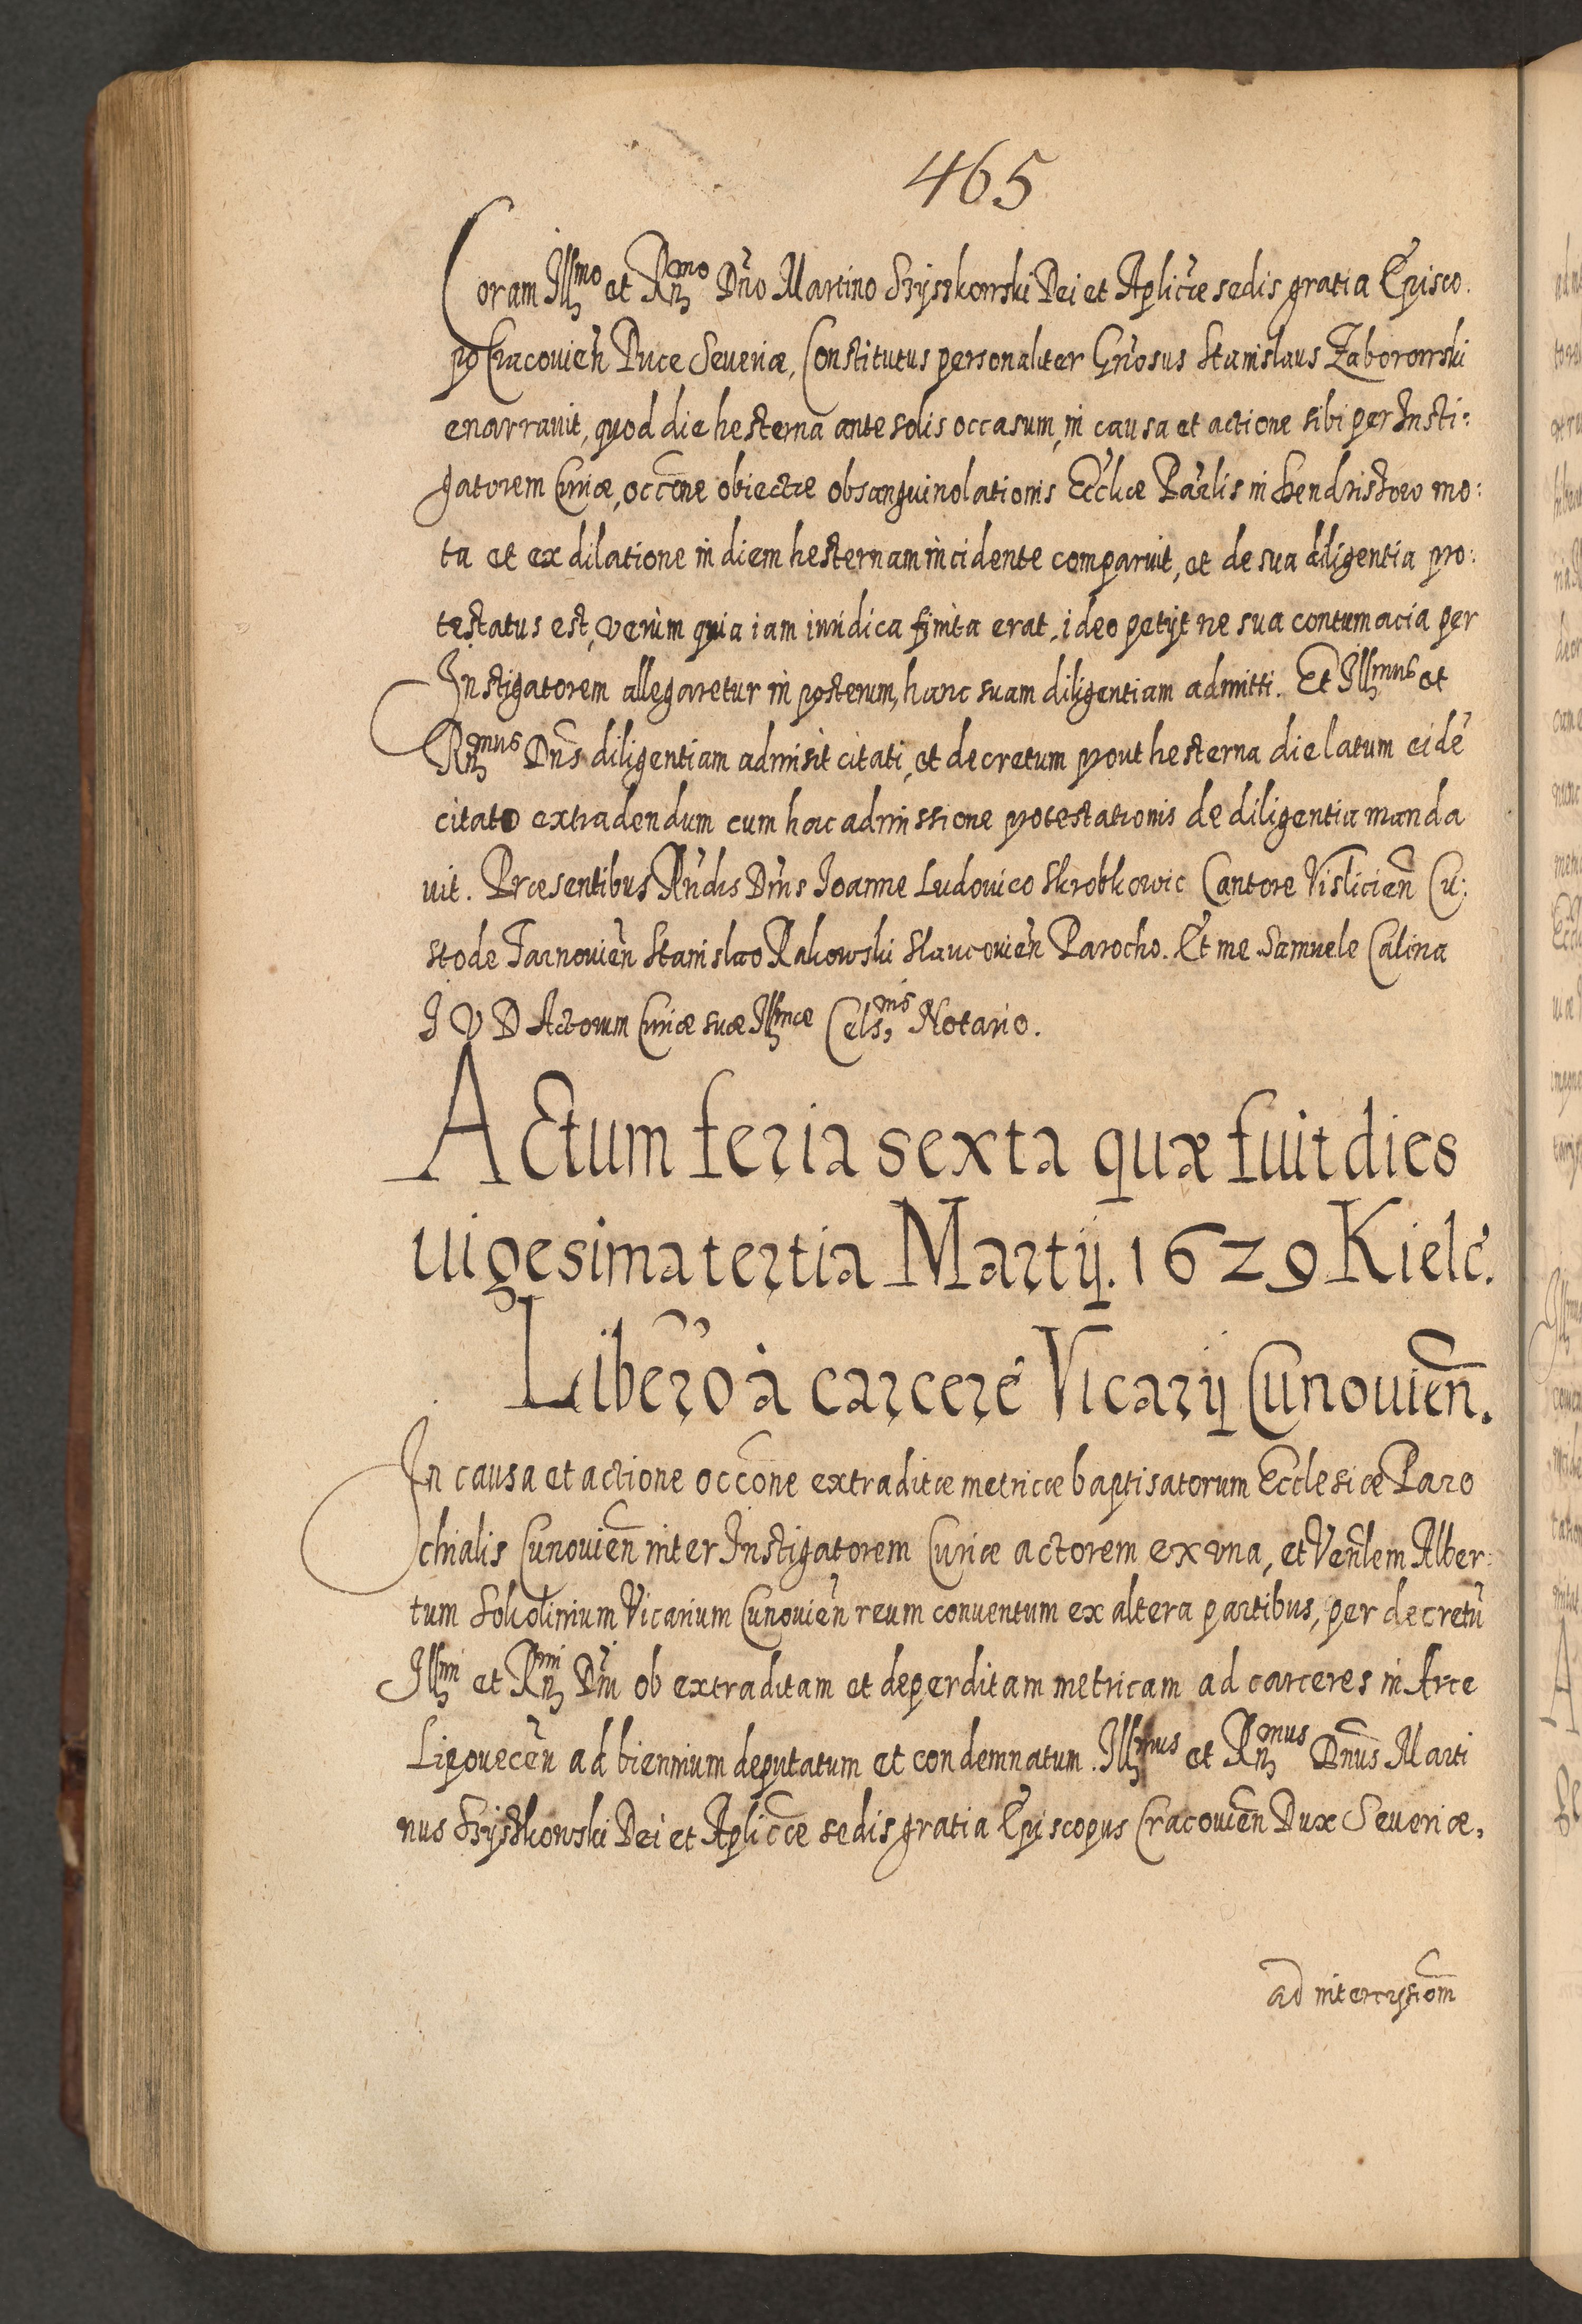 465
Coram Illmo et Rndmo Dño Martino Szyszkowski Dei et Aplicæ sedis gratia Episco.
po Cracovień Duce Severiæ, Constitutus personaliter Gñosus Stanislaus Zaborowski
enarravit, quod die hesterna ante solis occasum, in causa et actione sibi per Insti:
gatorem Curiæ, occõne obiectæ obsanguinolationis Ecclićæ Pãrlis in mo:
ta et ex dilatione in diem hesternam incidente comparuit, et de sua diligentia pro:
testatus est, verùm quia iam iuridica finita erat, ideo petijt ne sua contumacia per
Instigatorem allegaretur in posterum, hanc suam diligentiam admitti. Et Illmus et
Rndmus Dñs diligentiam admisit citati, et decretum prout hesterna die latum eidē
citato extradendum cum hac admissione protestationis de diligentia manda
vit. Præsentibus Rñdis Dñis Ioanne Ludovico Skrobkowic Cantore Visliciēn Cu:
stode Tarnoviēn Stanislao Rakowski Slaucoviēn Parocho. Et me Samuele Calina
I V D Actorum Curiæ suæ Illmæ Cels,nis Notario.
Actum feria sexta quæ fuit dies
vigesima tertia Martij. 1629 Kielc̃.
Liber̃o à carcere Vicarij Cunoviēn.
In causa et actione occõne extraditæ metricæ baptisatorum Ecclesiæ Paro
chialis Cunoviēn inter Instigatorem Curiæ actorem ex vna, et Veñlem Alber:
tum Sokolinium Vicarium Cunoviēn reum conventum ex altera partibus, per decretū
Illmi et Rndmi Dñi ob extraditam et deperditam metricam ad carceres in Arce
Lipovecēn ad biennium deputatum et condemnatum. Illmus et Rndmus Dñus Marti
nus Szyszkowski Dei et Aplicæ sedis gratia Episcopus Cracoviēn Dux Severiæ,
ad intercessiom̃